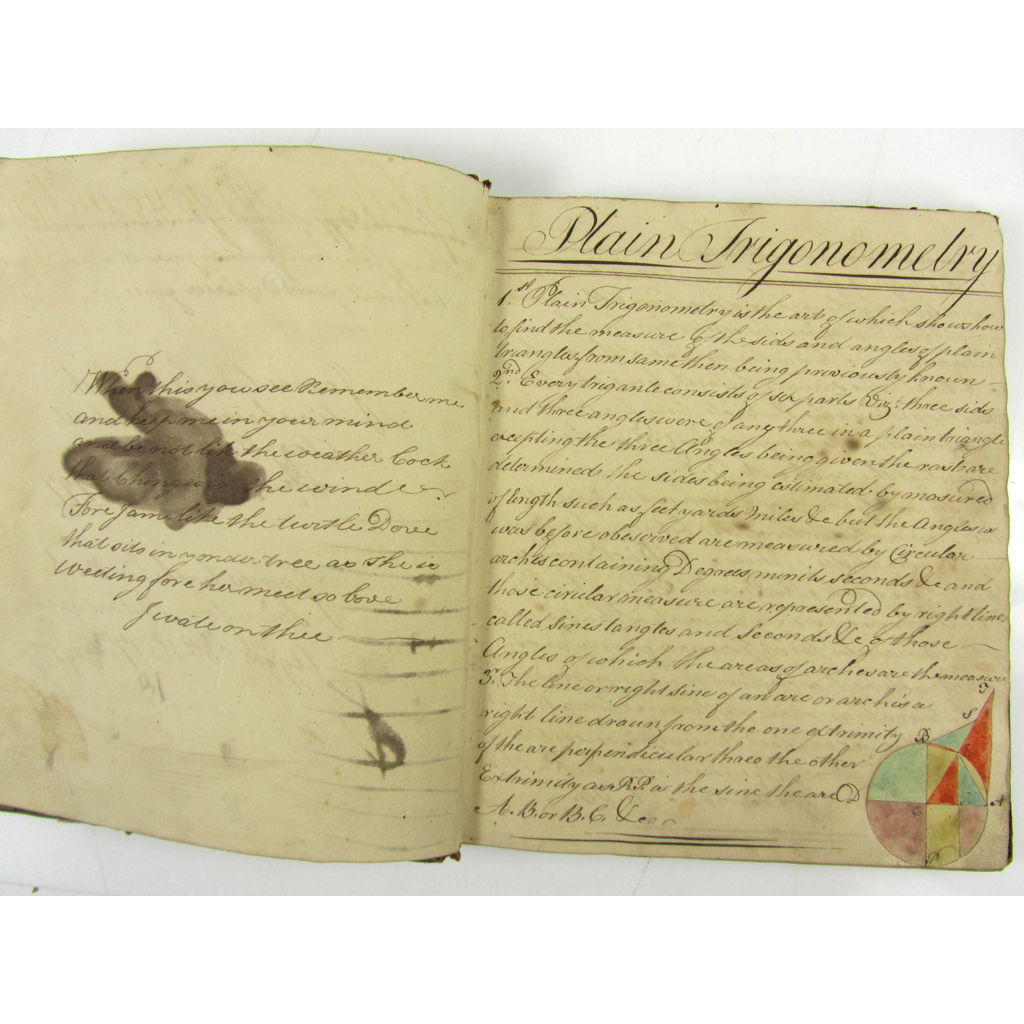 When this you see Remember me
and keep me in your mind
and be not lik the weather Cock
that Chinge in the wind
Fore I ame like the turtle Dove
that sits in yonder tree as She is
weeting fore her meet so love
I wate on thee
18
Plain Trigonometry
1.st Plain Trigonometry is the art of which shows how
to find the measure of the sids and angles of plain
triangles from same then being previously known
2.nd Every trigante consists of six parts Viz. three sids
and three angles were of any three in a plain triangle
excepting the three Angles being given the rast are
determined the sides being estimated by measured
of length such as feet yards miles &c but the Angles as
was before obeserved are measured by Circular
arches containing Degrees monits seconds &c and
those cirular measure are represented by right line
called sines tangles and Seconds &c of those
Angles of which the areas of arches are the measure
3. The line or right sine of an arc or arch is a
right line drawn from the one extrimity
of the are perpendicular thareo the other
Extrimity as P.P. is the sine the are
A.B. or B.C. &c
T
S
B
D
C
A